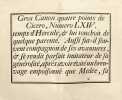 Gros Canon quatre points de
Cicero, Numero LXIV.
temps d'Hercule, & luy touchoit de
quelque parenté. Aussi fut-il sou-
vent compagnon de ses avantures,
& se rendit parfait imitateur de sa
generosité, apres
vage empoisonné que Medée, sa